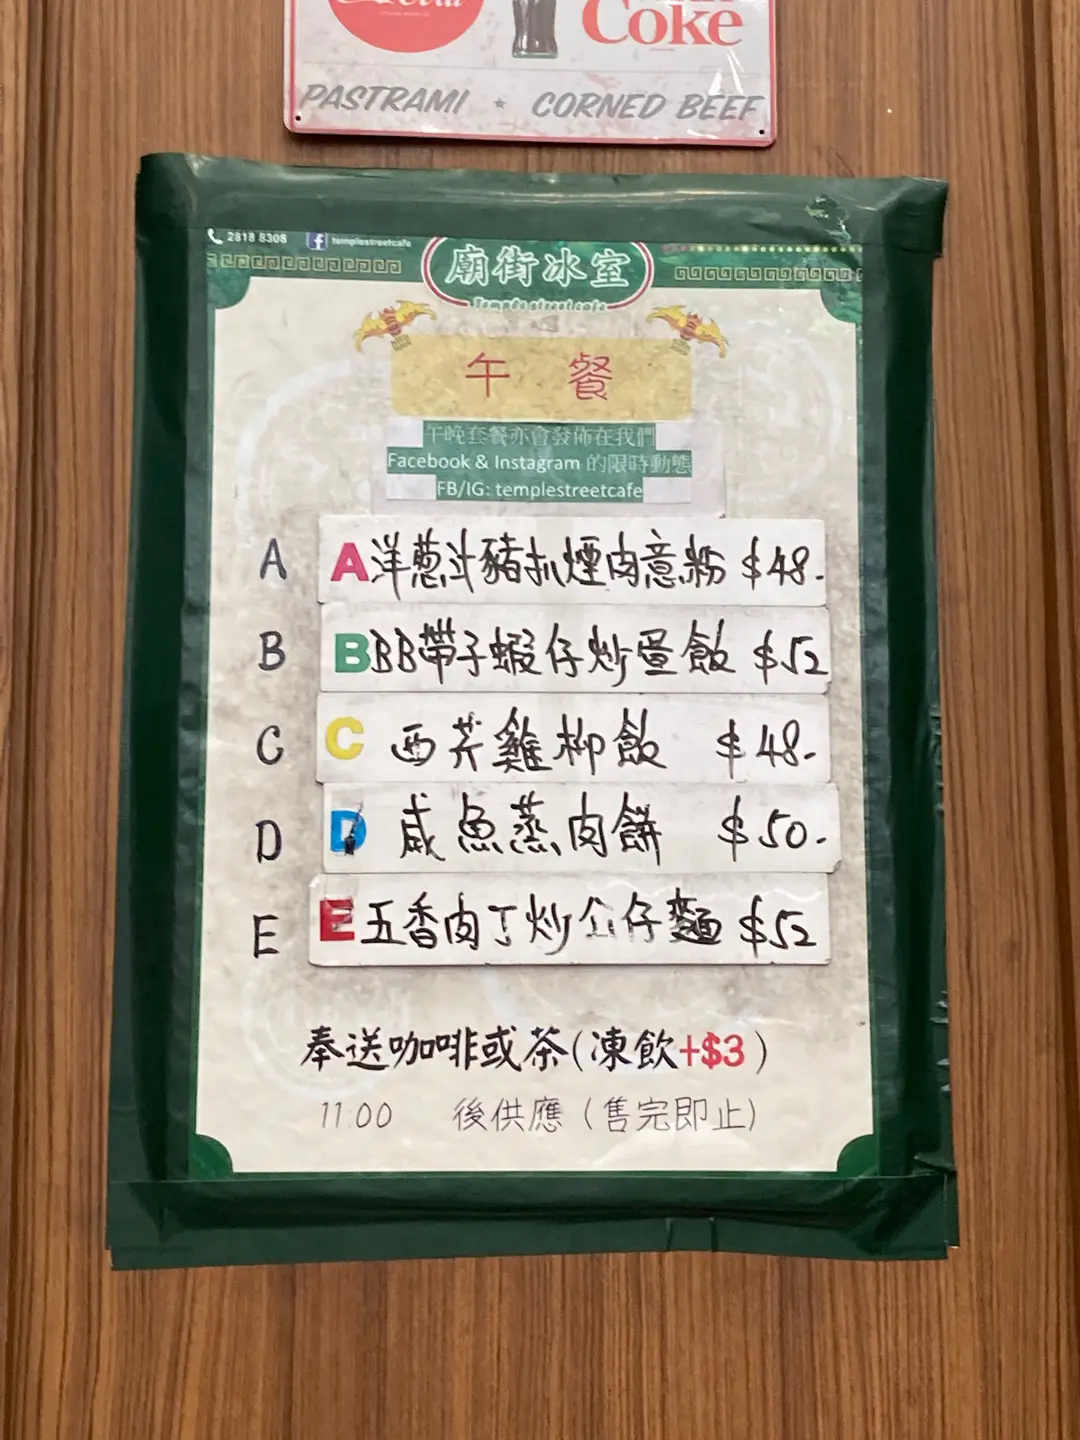 Coke
PASTRAMI ★ CORNED BEEF
2818 8308 templestreetcafe
廟街冰室
Temple street cafe
午餐
午晚套餐亦會發佈在我們
Facebook & Instagram 的限時動態
FB/IG: templestreetcafe
A A洋葱汁豬扒煙肉意粉 $48.
B BBB帶子蝦仔炒蛋飯 $52
C C 西芹雞柳飯 $48.
D D 咸魚蒸肉餅 $50.
E E五香肉丁炒公仔麵 $52
奉送咖啡或茶(凍飲+$3)
11.00 後供應(售完即止)